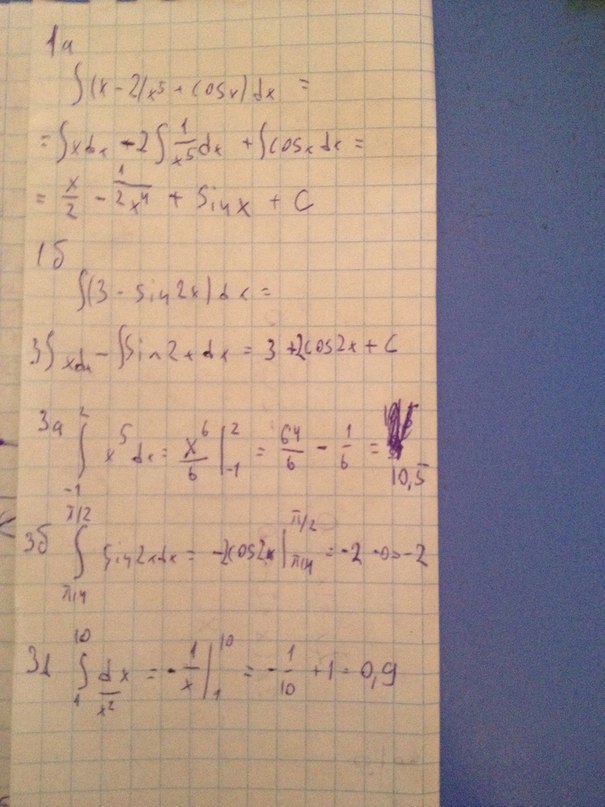 1а
∫(x - 2/x⁵ + cosx)dx =
= ∫xdx - 2∫1/x⁵ dx + ∫cosxdx =
= x/2 - 1/2x⁴ + Sinx + C
1б
∫(3 - Sin2x)dx =
3∫xdx - ∫Sin2xdx = 3 + 2cos2x + C
3а ∫₋₁² x⁵dx = x⁶/6 |₋₁² = 64/6 - 1/6 = 10,5
3б ∫π/4^π/2 Sin2xdx = -2cos2x |π/4^π/2 = -2 - 0 = -2
3д ∫₁¹⁰ dx/x² = -1/x |₁¹⁰ = -1/10 + 1 = 0,9